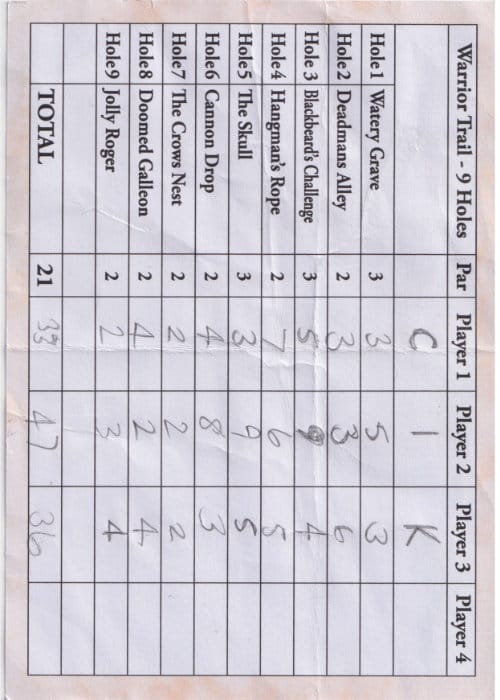 Warrior Trail - 9 Holes Par Player 1 Player 2 Player 3 Player 4
C I K
Hole1 Watery Grave 3 3 5 3
Hole2 Deadmans Alley 2 3 3 6
Hole 3 Blackbeard's Challenge 3 5 9 4
Hole4 Hangman's Rope 2 7 6 5
Hole5 The Skull 3 3 9 5
Hole6 Cannon Drop 2 4 8 3
Hole7 The Crows Nest 2 2 2 2
Hole8 Doomed Galleon 2 4 2 4
Hole9 Jolly Roger 2 2 3 4
TOTAL 21 33 47 36